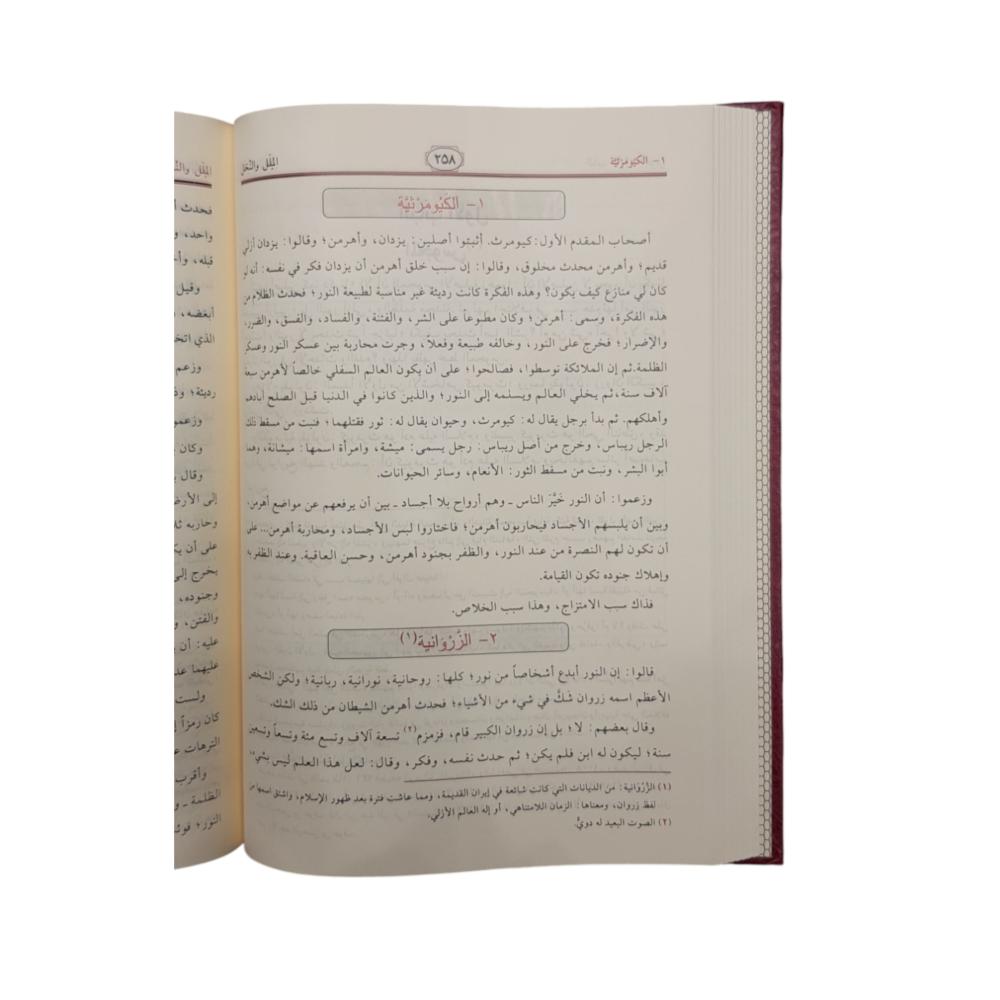 ١- الكيومرثية
٢٥٨
الملل والنحل
١- الكَيُومَرْثيَّة
أصحاب المقدم الأول: كيومرث. أثبتوا أصلين: يزدان، وأهرمن؛ وقالوا: يزدان أزلي
قديم؛ وأهرمن محدث مخلوق، وقالوا: إن سبب خلق أهرمن أن يزدان فكر في نفسه: أنه لو
كان لي منازع كيف يكون؟ وهذه الفكرة كانت رديئة غير مناسبة لطبيعة النور؛ فحدث الظلام من
هذه الفكرة، وسمى: أهرمن؛ وكان مطبوعاً على الشر، والفتنة، والفساد، والفسق، والضرر،
والإضرار؛ فخرج على النور، وخالفه طبيعة وفعلاً، وجرت محاربة بين عسكر النور وعسكر
الظلمة. ثم إن الملائكة توسطوا، فصالحوا؛ على أن يكون العالم السفلي خالصاً لأهرمن سبعة
آلاف سنة، ثم يخلي العالم ويسلمه إلى النور؛ والذين كانوا في الدنيا قبل الصلح أبادهم
وأهلكهم. ثم بدأ برجل يقال له: كيومرث، وحيوان يقال له: ثور فقتلهما؛ فنبت من مسقط ذلك
الرجل ريباس، وخرج من أصل ريباس: رجل يسمى: ميشة، وامرأة اسمها: ميشانة، وهما
أبوا البشر، ونبت من مسقط الثور: الأنعام، وسائر الحيوانات.
وزعموا: أن النور خَيَّرَ الناس ـ وهم أرواح بلا أجساد ـ بين أن يرفعهم عن مواضع أهرمن،
وبين أن يلبسهم الأجساد فيحاربون أهرمن؛ فاختاروا لبس الأجساد، ومحاربة أهرمن... على
أن تكون لهم النصرة من عند النور، والظفر بجنود أهرمن، وحسن العاقبة. وعند الظفر به
وإهلاك جنوده تكون القيامة.
فذاك سبب الامتزاج، وهذا سبب الخلاص.
٢- الزَّرْوَانية(١)
قالوا: إن النور أبدع أشخاصاً من نور؛ كلها: روحانية، نورانية، ربانية؛ ولكن الشخص
الأعظم اسمه زروان شَكَّ في شيء من الأشياء؛ فحدث أهرمن الشيطان من ذلك الشك.
وقال بعضهم: لا؛ بل إن زروان الكبير قام، فزمزم(٢) تسعة آلاف وتسع مئة وتسعاً وتسعين
سنة؛ ليكون له ابن فلم يكن؛ ثم حدث نفسه، وفكر، وقال: لعل هذا العلم ليس بشيء
(١) الزَّرْوَانية: من الديانات التي كانت شائعة في إيران القديمة، ومما عاشت فترة بعد ظهور الإسلام، واشتق اسمها من
لفظ زروان، ومعناها: الزمان اللامتناهي، أو إله العالم الأزلي.
(٢) الصوت البعيد له دويٌّ.